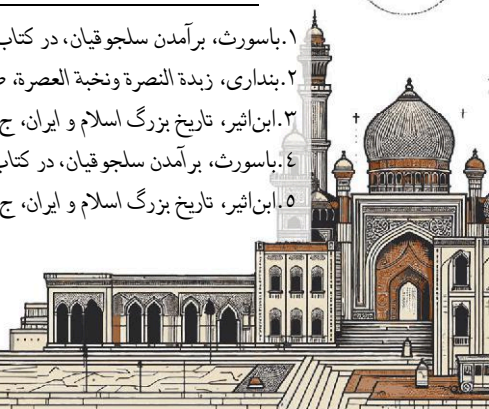 ١.باسورث، برآمدن سلجوقیان، در کتاب
٢.بنداری، زبدة النصرة ونخبة العصرة، ص
٣.ابن‌اثیر، تاریخ بزرگ اسلام و ایران، ج
٤.باسورث، برآمدن سلجوقیان، در کتاب
٥.ابن‌اثیر، تاریخ بزرگ اسلام و ایران، ج